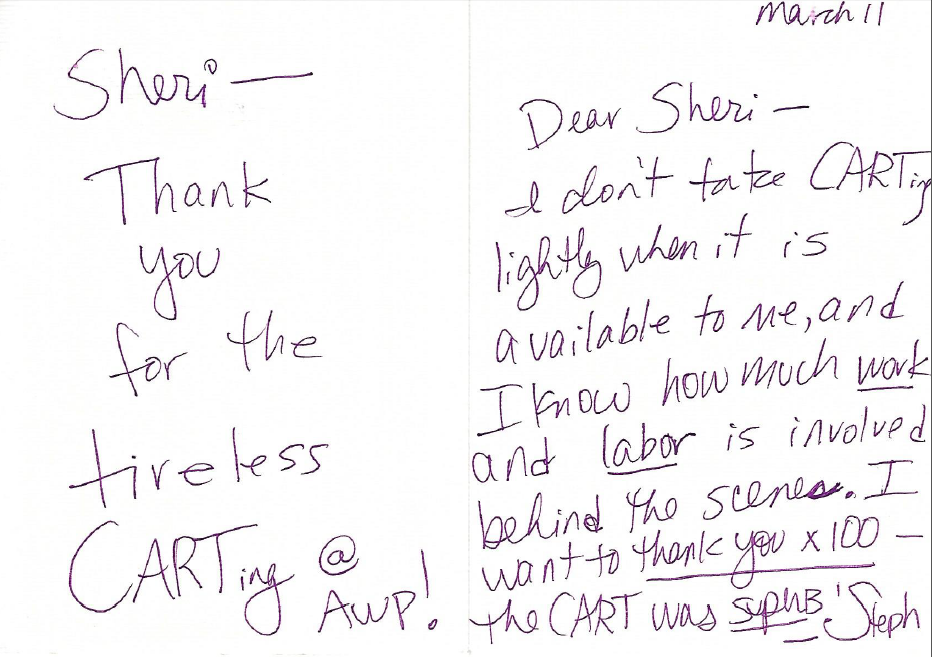 Sheri —
Thank
you
for the
tireless
CARTing @
AWP!
March 11
Dear Sheri —
I don't take CARTing
lightly when it is
available to me, and
I know how much work
and labor is involved
behind the scenes. I
want to thank you x 100 —
the CART was superb! Steph